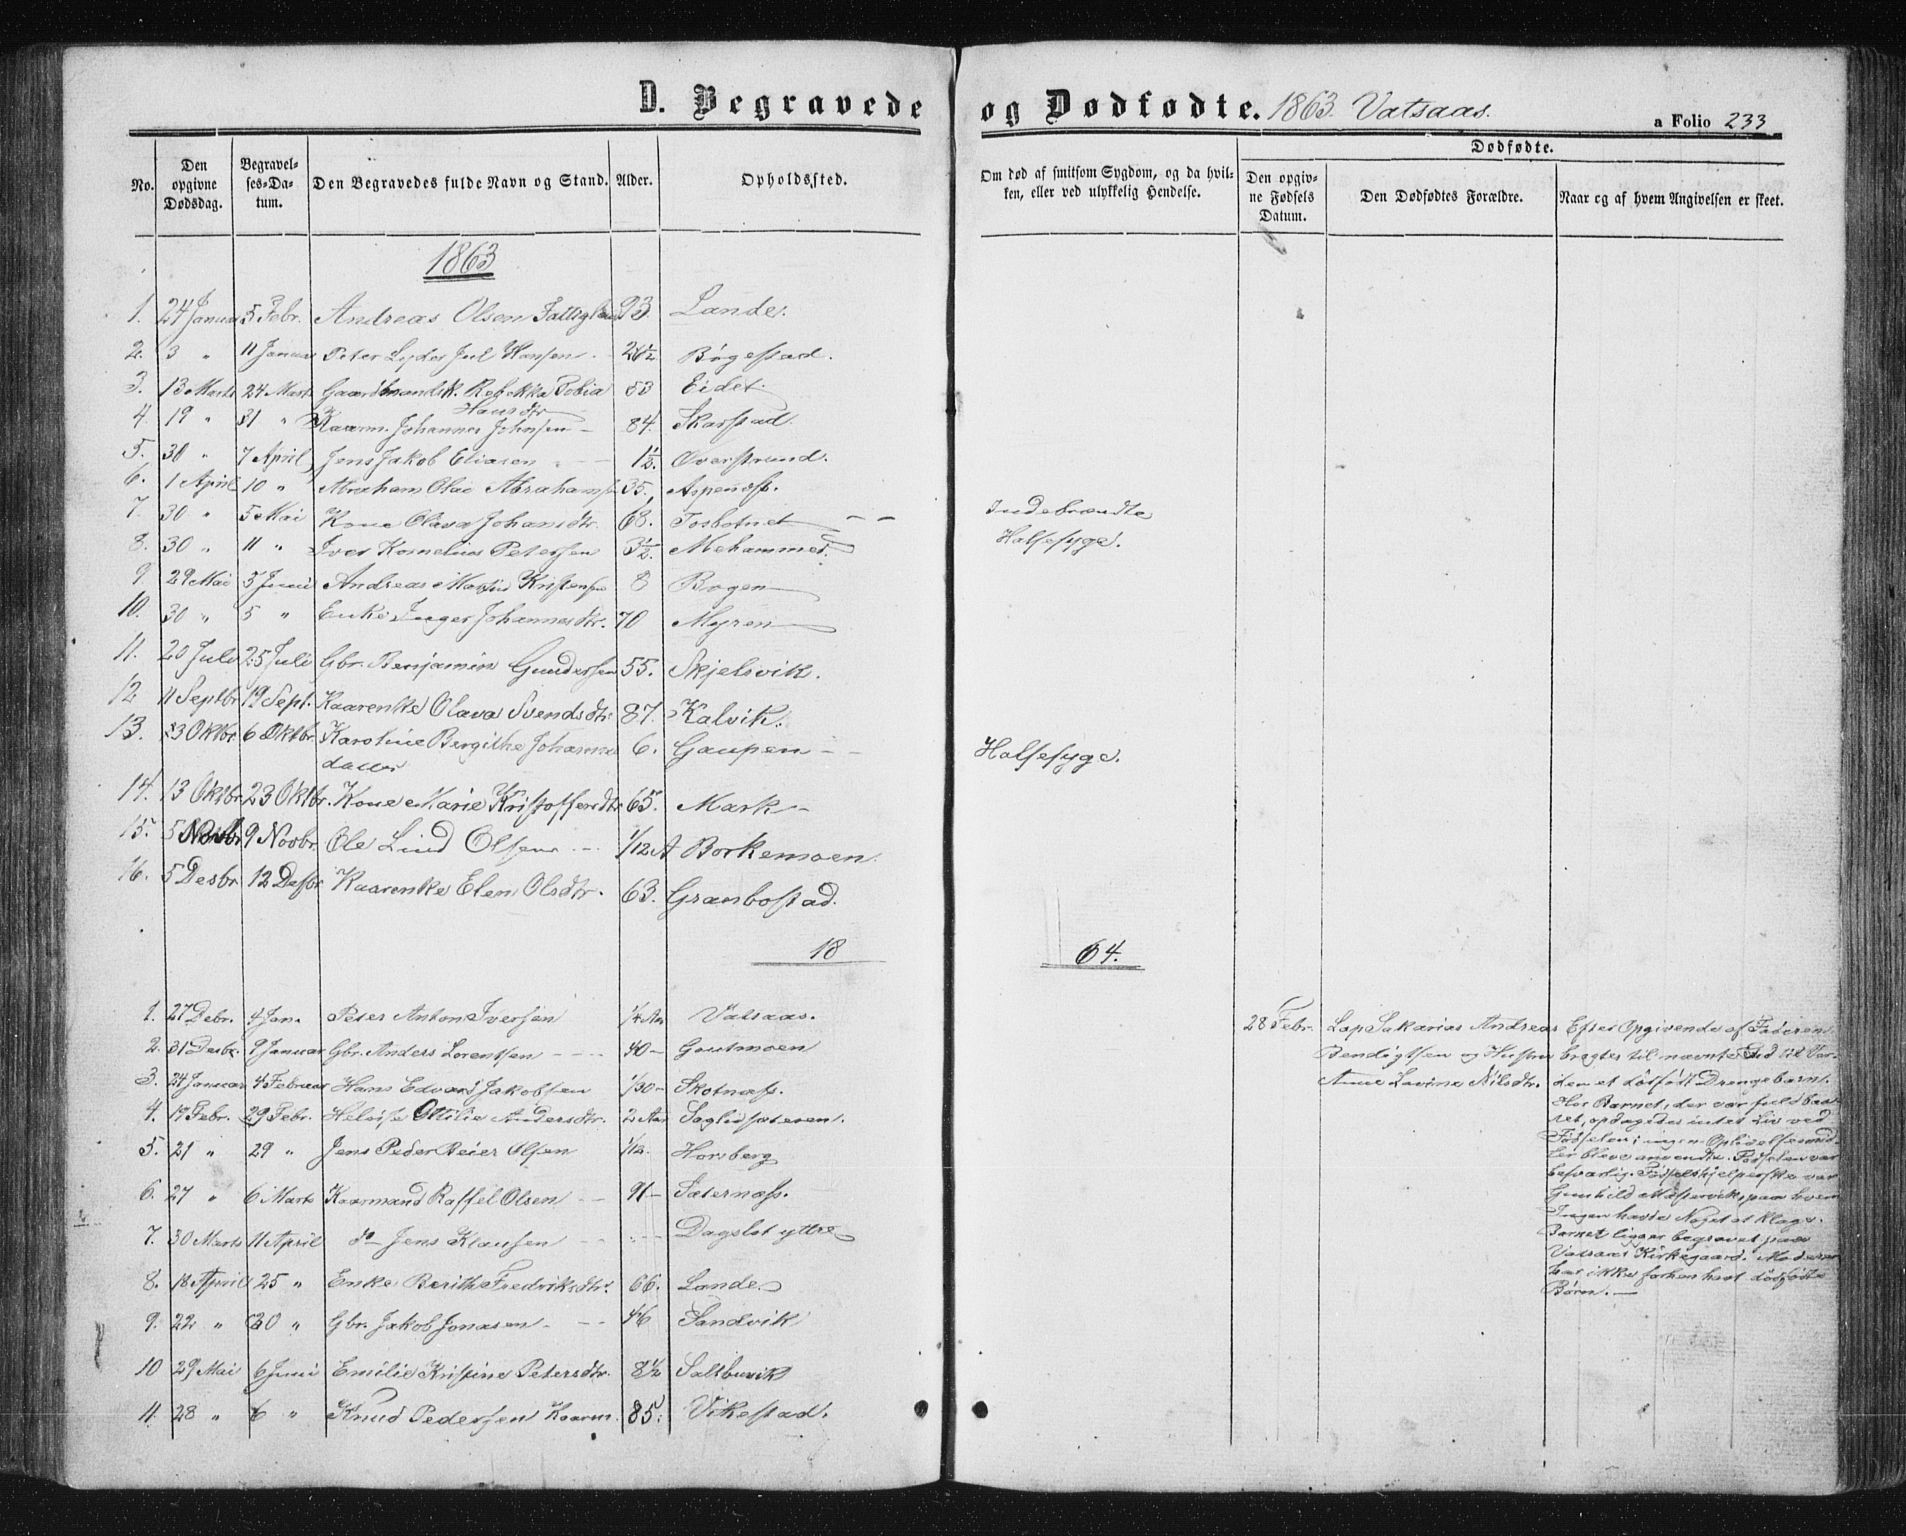 D. Begravede og Dødfødte. 1863. Vatsaas.
a Folio 233
No.
Den opgivne Dødsdag.
Begravel-ses-Da-tum.
Den Begravedes fulde Navn og Stand.
Alder.
Opholdssted.
Om død af smitsom Sygdom, og da hvil-
ken, eller ved ulykkelig Hendelse.
Dødfødte.
Den opgiv-ne Fødsels Datum.
Den Dødfødtes Forældre.
Naar og af hvem Angivelsen er skeet.
1863
1. 24 Januar 5 Febr. Andreas Olsen 93. Lande.
2. 3 " 11 Januar Peter Lyder Jul Hansen Bøgestad.
3. 13 Marts 24 Marts Rebekka Tobia 83 Eidet
Hansdtr
4. 19 " 31 " Kaarm. Johannes Johnsen - 84. Skarstad.
5. 30 " 7 April Jens Jakob Eliasen 1½. Overstrand.
6. 1 April 10 " Abraham Olai Abrahams 35. Aspenæss.
7. 30 " 5 Mai Kone Olava Johansdtr. 68. Tosbotnet - - Indebrændte
8. 30 " 11 " Iver Kornelius Petersen 3½. Mehammer Halsesyge.
9. 29 Mai 5 Juni Andreas Martin Kristensen 8 Bogen
10. 30 " 5 " Enke Inger Johannesdtr. 70 Myren
11. 20 Juli 25 Juli Gbr. Benjamin Gundersen 55. Skjelsvik.
12 11 Septbr 19 Sept. Kaarenke Olava Svendsdtr 87. Kalvik.
13. 23 Oktbr. 6 Oktbr. Karoline Bergithe Johanna 6. Gaupen - - Halsesyge.
datter
14. 13 Oktbr. 23 Oktbr. Kone Marie Kristoffersdtr 65. Mark -
15. 5 Novbr 9 Novbr. Ole Lind Olsen - 1/12 A Borkemoen.
16. 5 Desbr 12 Desbr Kaarenke Elen Olsdtr. 63. Grænbostad.
18
64.
1. 27 Debr. 4 Jan. Peter Anton Iversen ¼ Aar Vatsaas.
2. 31 Desbr. 9 Januar Gbr. Anders Lorentsen - - - 40 -
3. 24 Januar 4 Februar Hans Edvard Jakobsen 1/30 - Skotnæss.
4. 19 Febr. 29 Febr. Heloise Ottilie Andersdtr. 2 Aar
5. 21 " 29 " Jens Peder Reier Olsen 1/12. Horsberg
6. 27 " 6 Marts Kaarmand Raffel Olsen - - 91 - Sæternæss.
7. 30 Marts 11 April do Jens Klausen - - Dagslot yttre
8. 18 April 25 " Enke Berith Fredriksdtr. 66. Lande.
9. 22 " 30 " Gbr. Jakob Jonasen - - - 46 Sandvik
10 29 Mai 6 Juni Emilie Kristine Petersdtr. 8½ Saltbuvik
11. 28 " 6 " Knud Pedersen Kaarm. 85. Vikestad.
28 Febr.
Lap Sakarias Andreas
Bendigtsen og Hustru
Anne Lovina Nilsdtr.
Efter Opgivende af Faderen
bragtes til nævnte Tid til Ver-
den et dødfødt Drengebarn.
Hos Barnet, der var fuldbaa-
ret, opdagedes intet Liv ved
Fødselen; ingen Oplivelsesmid-
ler bleve anvendte. Fødselen var
besværlig. Fødselshjelperske var
Gunhild Mastervik, paa hvem
Ingen havde Noget at klage.
Barnet ligger begravet paa
Vatsaas Kirkegaard. Moderen
har ikke forhen havt dødfødte
Børn. -